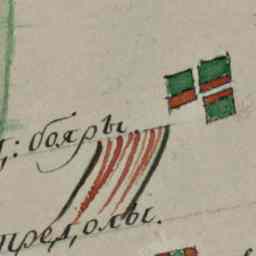 : бояры
предолы.